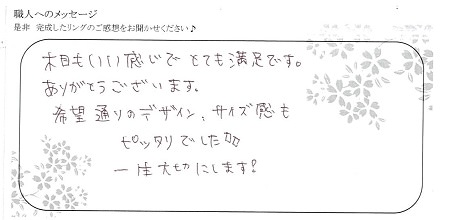 職人へのメッセージ
是非 完成したリングのご感想をお聞かせください♪
木目もいい感じで とても満足です。
ありがとうございます。
希望通りのデザイン、サイズ感も
ピッタリでした
一生大切にします!